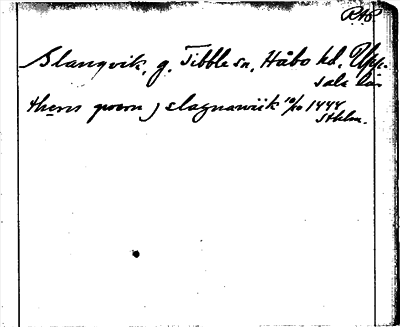 RAP
Slangvik, g. Tibble sn, Håbo hd, Upp-
sala län
thens gwern j slagnawiik 10/10 1444
Sthlm.